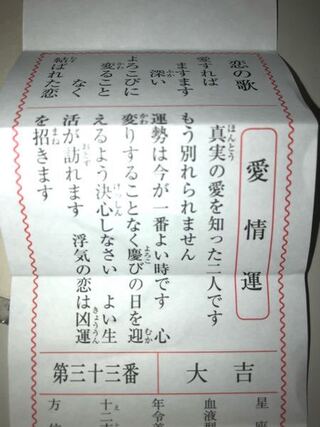 恋の歌
愛すれば
ますます
深い
よろこびに
変ること
なく
結ばれた恋
愛情運
真実の愛を知った二人です
もう別れられません
運勢は今が一番よい時です　心
変りすることなく慶びの日を迎
えるよう決心しなさい　よい生
活が訪れます　浮気の恋は凶運
を招きます
大吉
第三十三番
星座
血液型
年令
十二
方